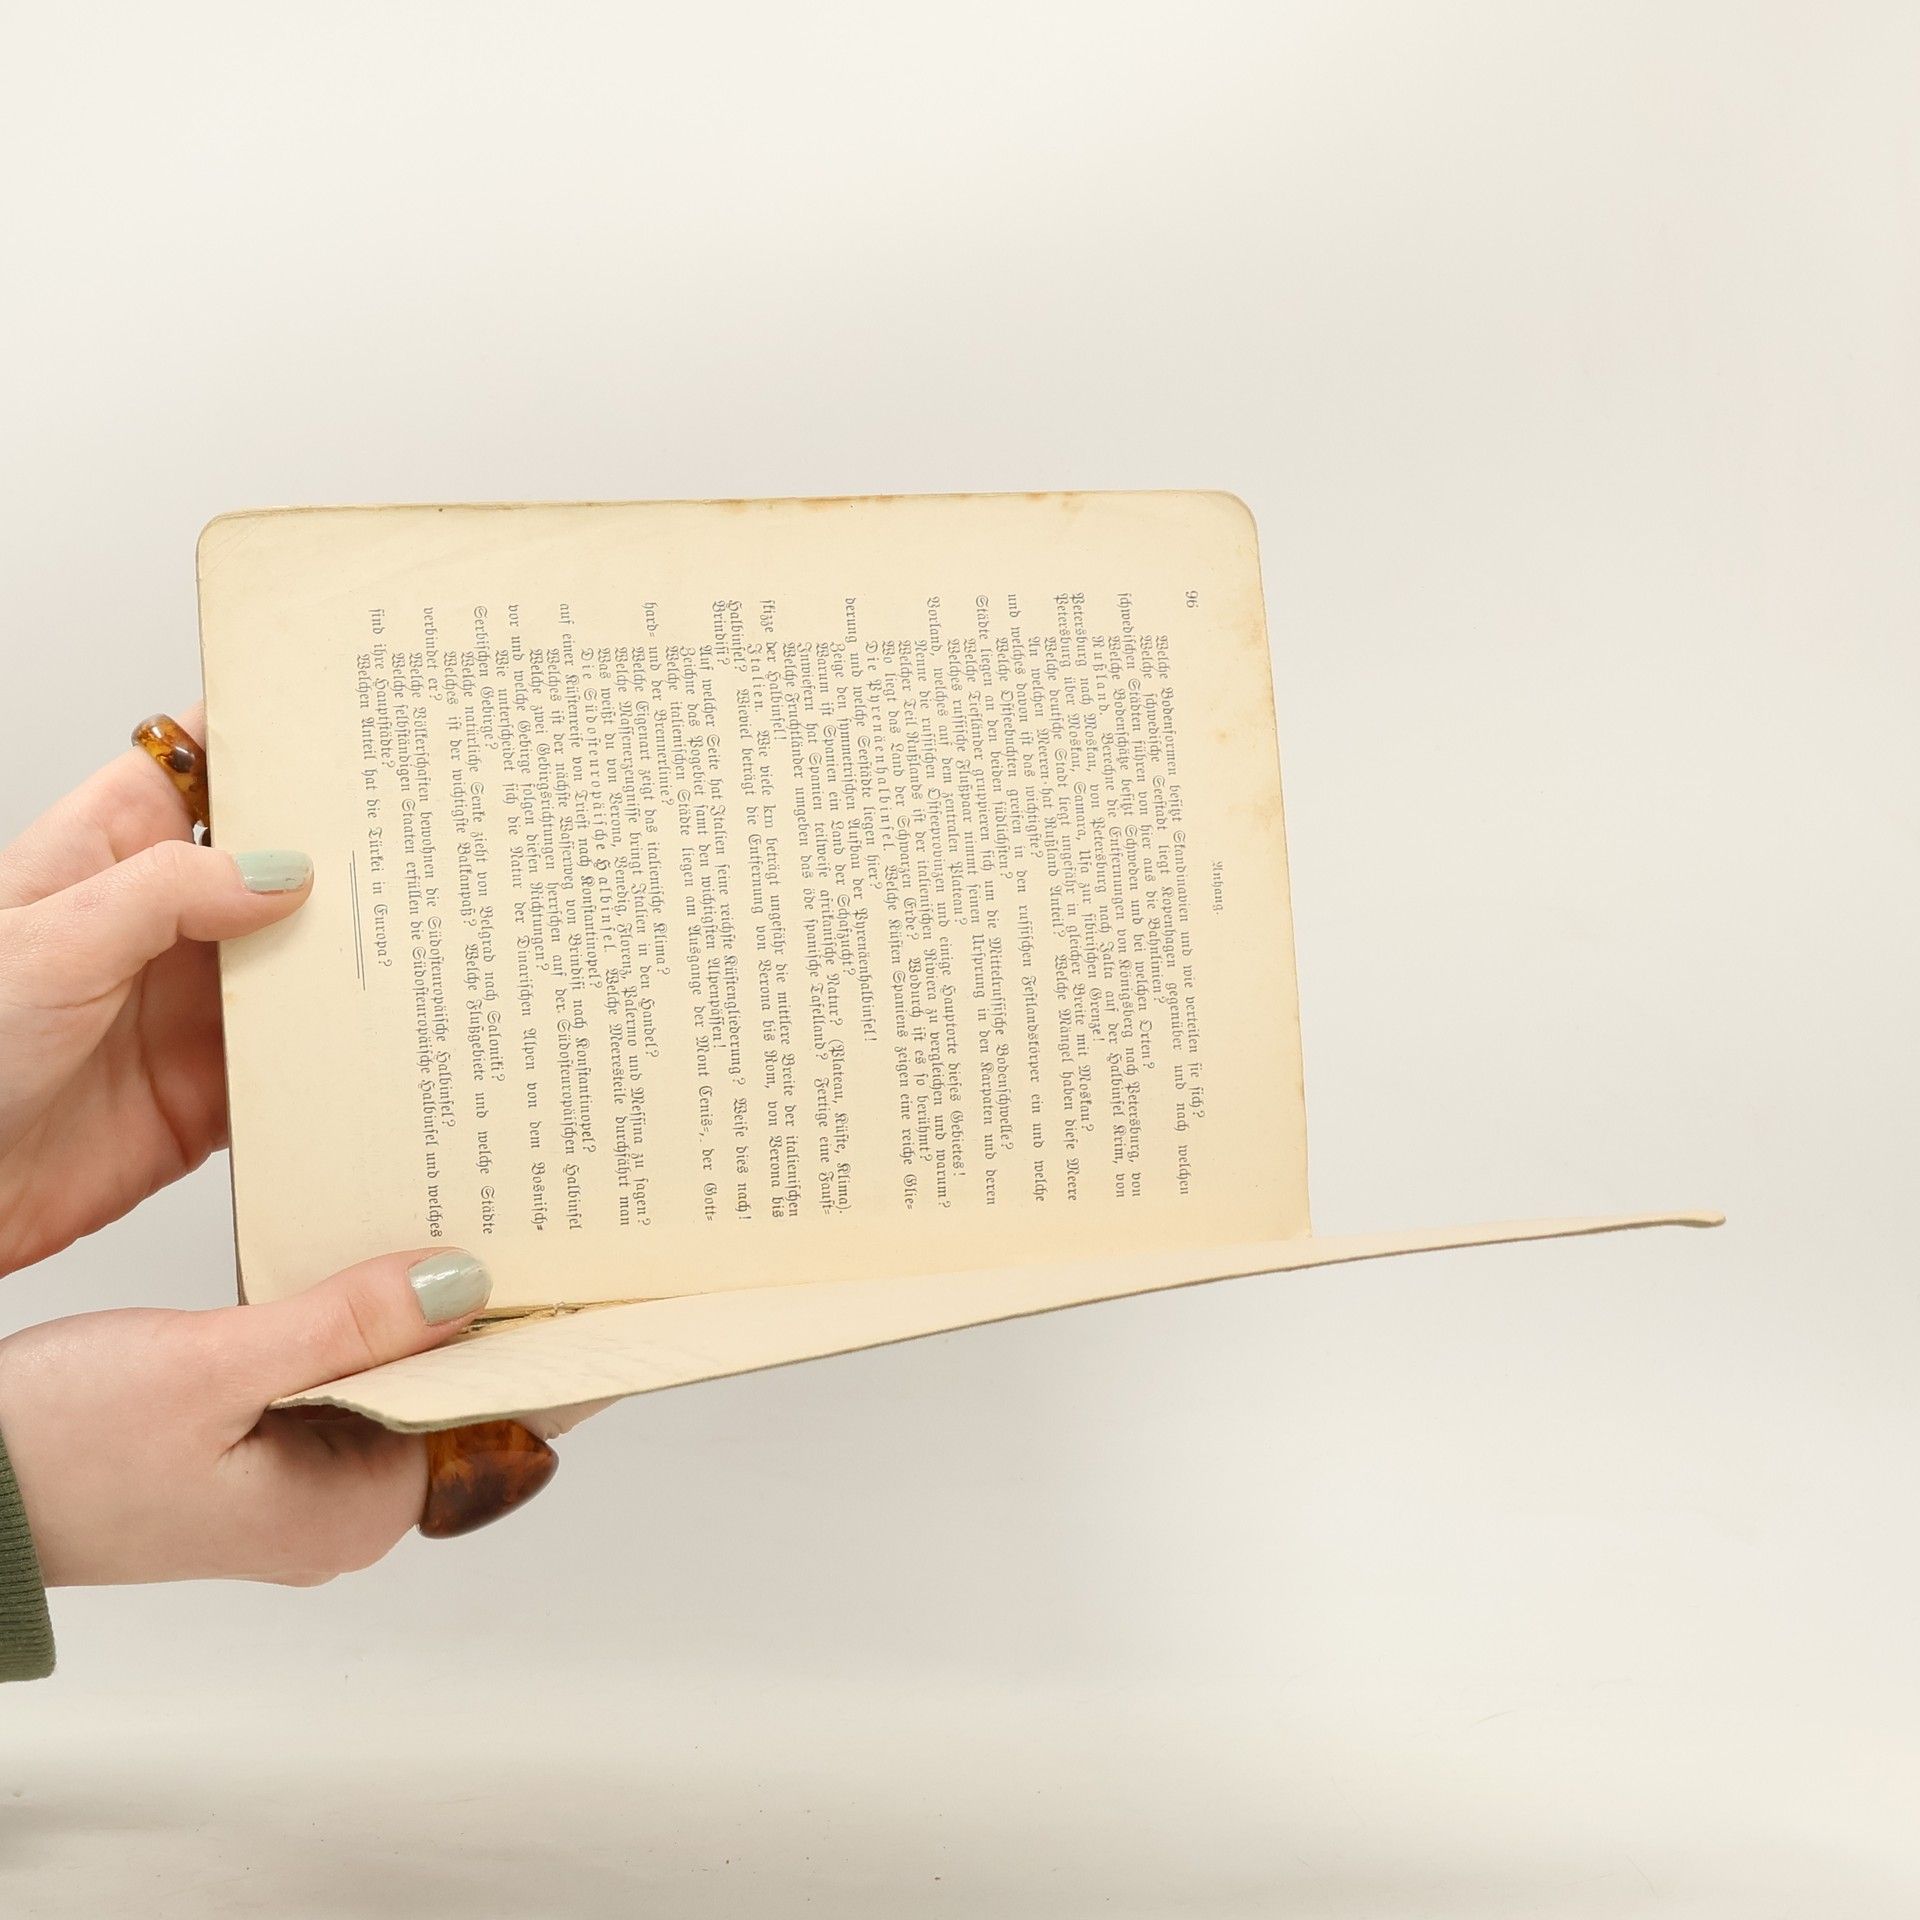 96
Anhang.
Welche Bodenformen besitzt Skandinavien und wie verteilen sie sich?
Welche schwedische Seestadt liegt Kopenhagen gegenüber und nach welchen
schwedischen Städten führen von hier aus die Bahnlinien?
Welche Bodenschätze besitzt Schweden und bei welchen Orten?
Rußland. Berechne die Entfernungen von Königsberg nach Petersburg, von
Petersburg nach Moskau, von Petersburg nach Jalta auf der Halbinsel Krim, von
Petersburg über Moskau, Samara, Ufa zur sibirischen Grenze!
Welche deutsche Stadt liegt ungefähr in gleicher Breite mit Moskau?
An welchen Meeren hat Rußland Anteil? Welche Mängel haben diese Meere
und welches davon ist das wichtigste?
Welche Ostseebuchten greifen in den russischen Festlandskörper ein und welche
Städte liegen an den beiden südlichsten?
Welche Tiefländer gruppieren sich um die Mittelrussische Bodenschwelle?
Welches russische Flußpaar nimmt seinen Ursprung in den Karpaten und deren
Vorland, welches auf dem zentralen Plateau?
Nenne die russischen Ostseeprovinzen und einige Hauptorte dieses Gebietes!
Welcher Teil Rußlands ist der italienischen Riviera zu vergleichen und warum?
Wo liegt das Land der Schwarzen Erde? Wodurch ist es so berühmt?
Die Pyrenäenhalbinsel. Welche Küsten Spaniens zeigen eine reiche Glie-
derung und welche Seestädte liegen hier?
Zeige den symmetrischen Aufbau der Pyrenäenhalbinsel!
Warum ist Spanien ein Land der Schafzucht?
Inwiefern hat Spanien teilweise afrikanische Natur? (Plateau, Küste, Klima).
Welche Fruchtländer umgeben das öde spanische Tafelland? Fertige eine Faust-
skizze der Halbinsel!
Italien. Wie viele km beträgt ungefähr die mittlere Breite der italienischen
Halbinsel? Wieviel beträgt die Entfernung von Verona bis Rom, von Verona bis
Brindisi?
Auf welcher Seite hat Italien seine reichste Küstengliederung? Weise dies nach!
Zeichne das Pogebiet samt den wichtigsten Alpenpässen!
Welche italienischen Städte liegen am Ausgange der Mont Cenis-, der Gott-
hard- und der Brennerlinie?
Welche Eigenart zeigt das italienische Klima?
Welche Massenerzeugnisse bringt Italien in den Handel?
Was weißt du von Verona, Venedig, Florenz, Palermo und Messina zu sagen?
Die Südosteuropäische Halbinsel. Welche Meeresteile durchfährt man
auf einer Küstenreise von Triest nach Konstantinopel?
Welches ist der nächste Wasserweg von Brindisi nach Konstantinopel?
Welche zwei Gebirgsrichtungen herrschen auf der Südosteuropäischen Halbinsel
vor und welche Gebirge folgen diesen Richtungen?
Wie unterscheidet sich die Natur der Dinarischen Alpen von dem Bosnisch-
Serbischen Gebirge?
Welche natürliche Senke zieht von Belgrad nach Saloniki?
Welches ist der wichtigste Balkanpaß? Welche Flußgebiete und welche Städte
verbindet er?
Welche Völkerschaften bewohnen die Südosteuropäische Halbinsel?
Welche selbständigen Staaten erfüllen die Südosteuropäische Halbinsel und welches
sind ihre Hauptstädte?
Welchen Anteil hat die Türkei in Europa?